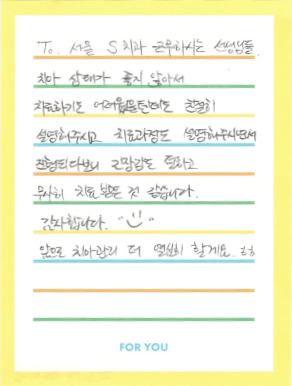 To. 서울 S치과 근무하시는 선생님들.
치아 상태가 좋지 않아서
치료하기도 어려웠을텐데도 친절히
설명해주시고 치료과정도 설명해주시면서
진행되다보니 긴장감도 덜하고
무사히 치료 받은 것 같습니다.
감사합니다.
앞으로 치아관리 더 열심히 할게요. ㅎㅎ
FOR YOU